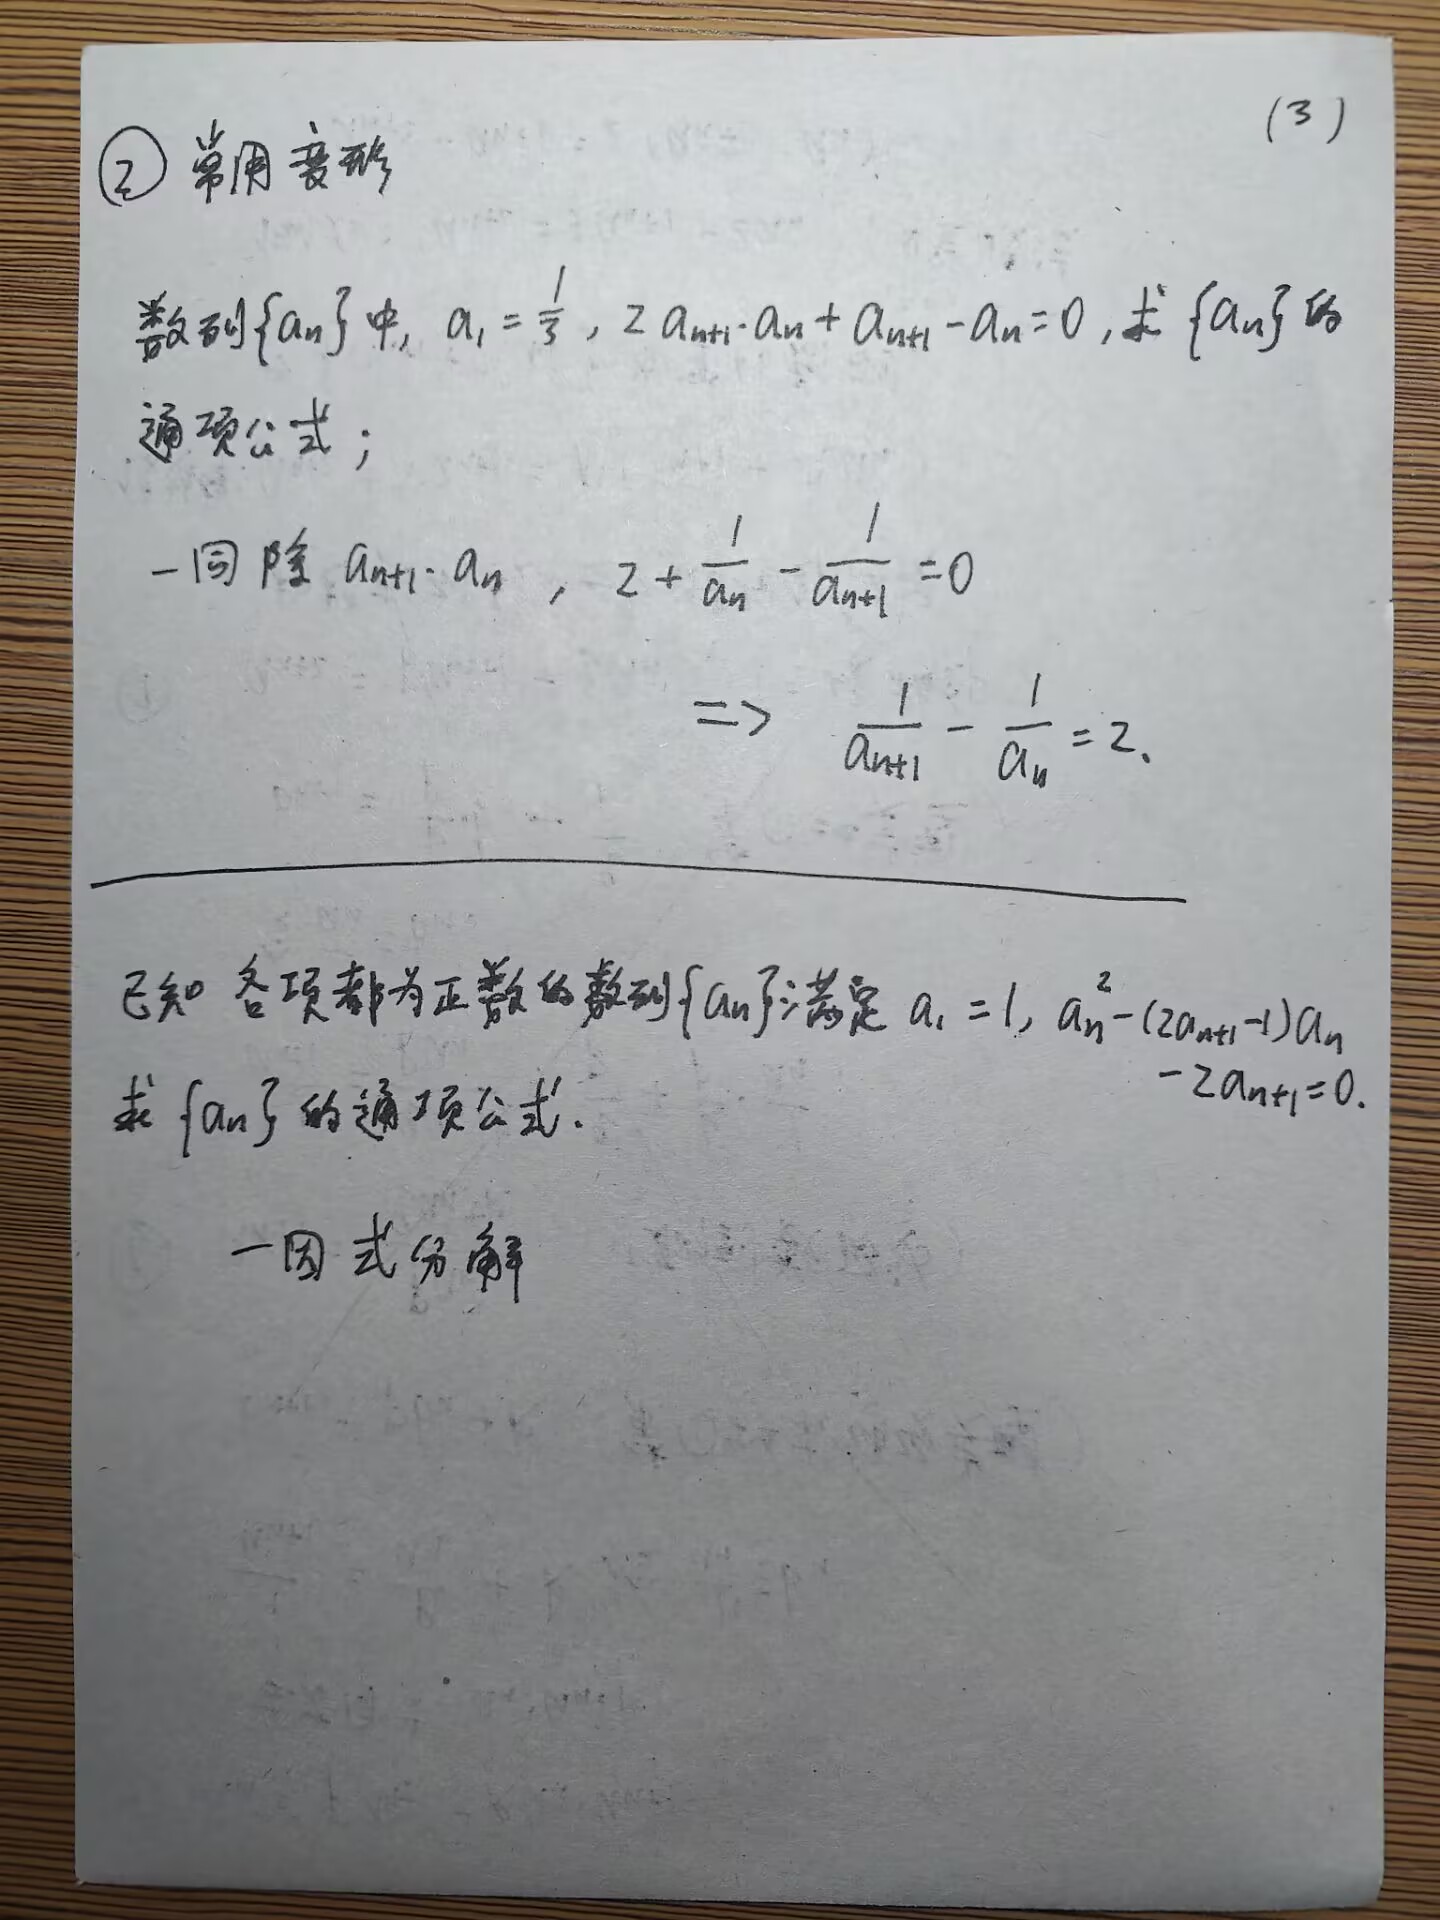 (3)
② 常用变形
数列{aₙ}中, a₁ = 1/3, 2aₙ₊₁·aₙ + aₙ₊₁ - aₙ = 0, 求{aₙ}的
通项公式;
- 同除 aₙ₊₁·aₙ, 2 + 1/aₙ - 1/aₙ₊₁ = 0
=> 1/aₙ₊₁ - 1/aₙ = 2.
已知各项都为正数的数列{aₙ}满足 a₁ = 1, aₙ² - (2aₙ₊₁ - 1)aₙ
- 2aₙ₊₁ = 0.
求{aₙ}的通项公式.
- 因式分解